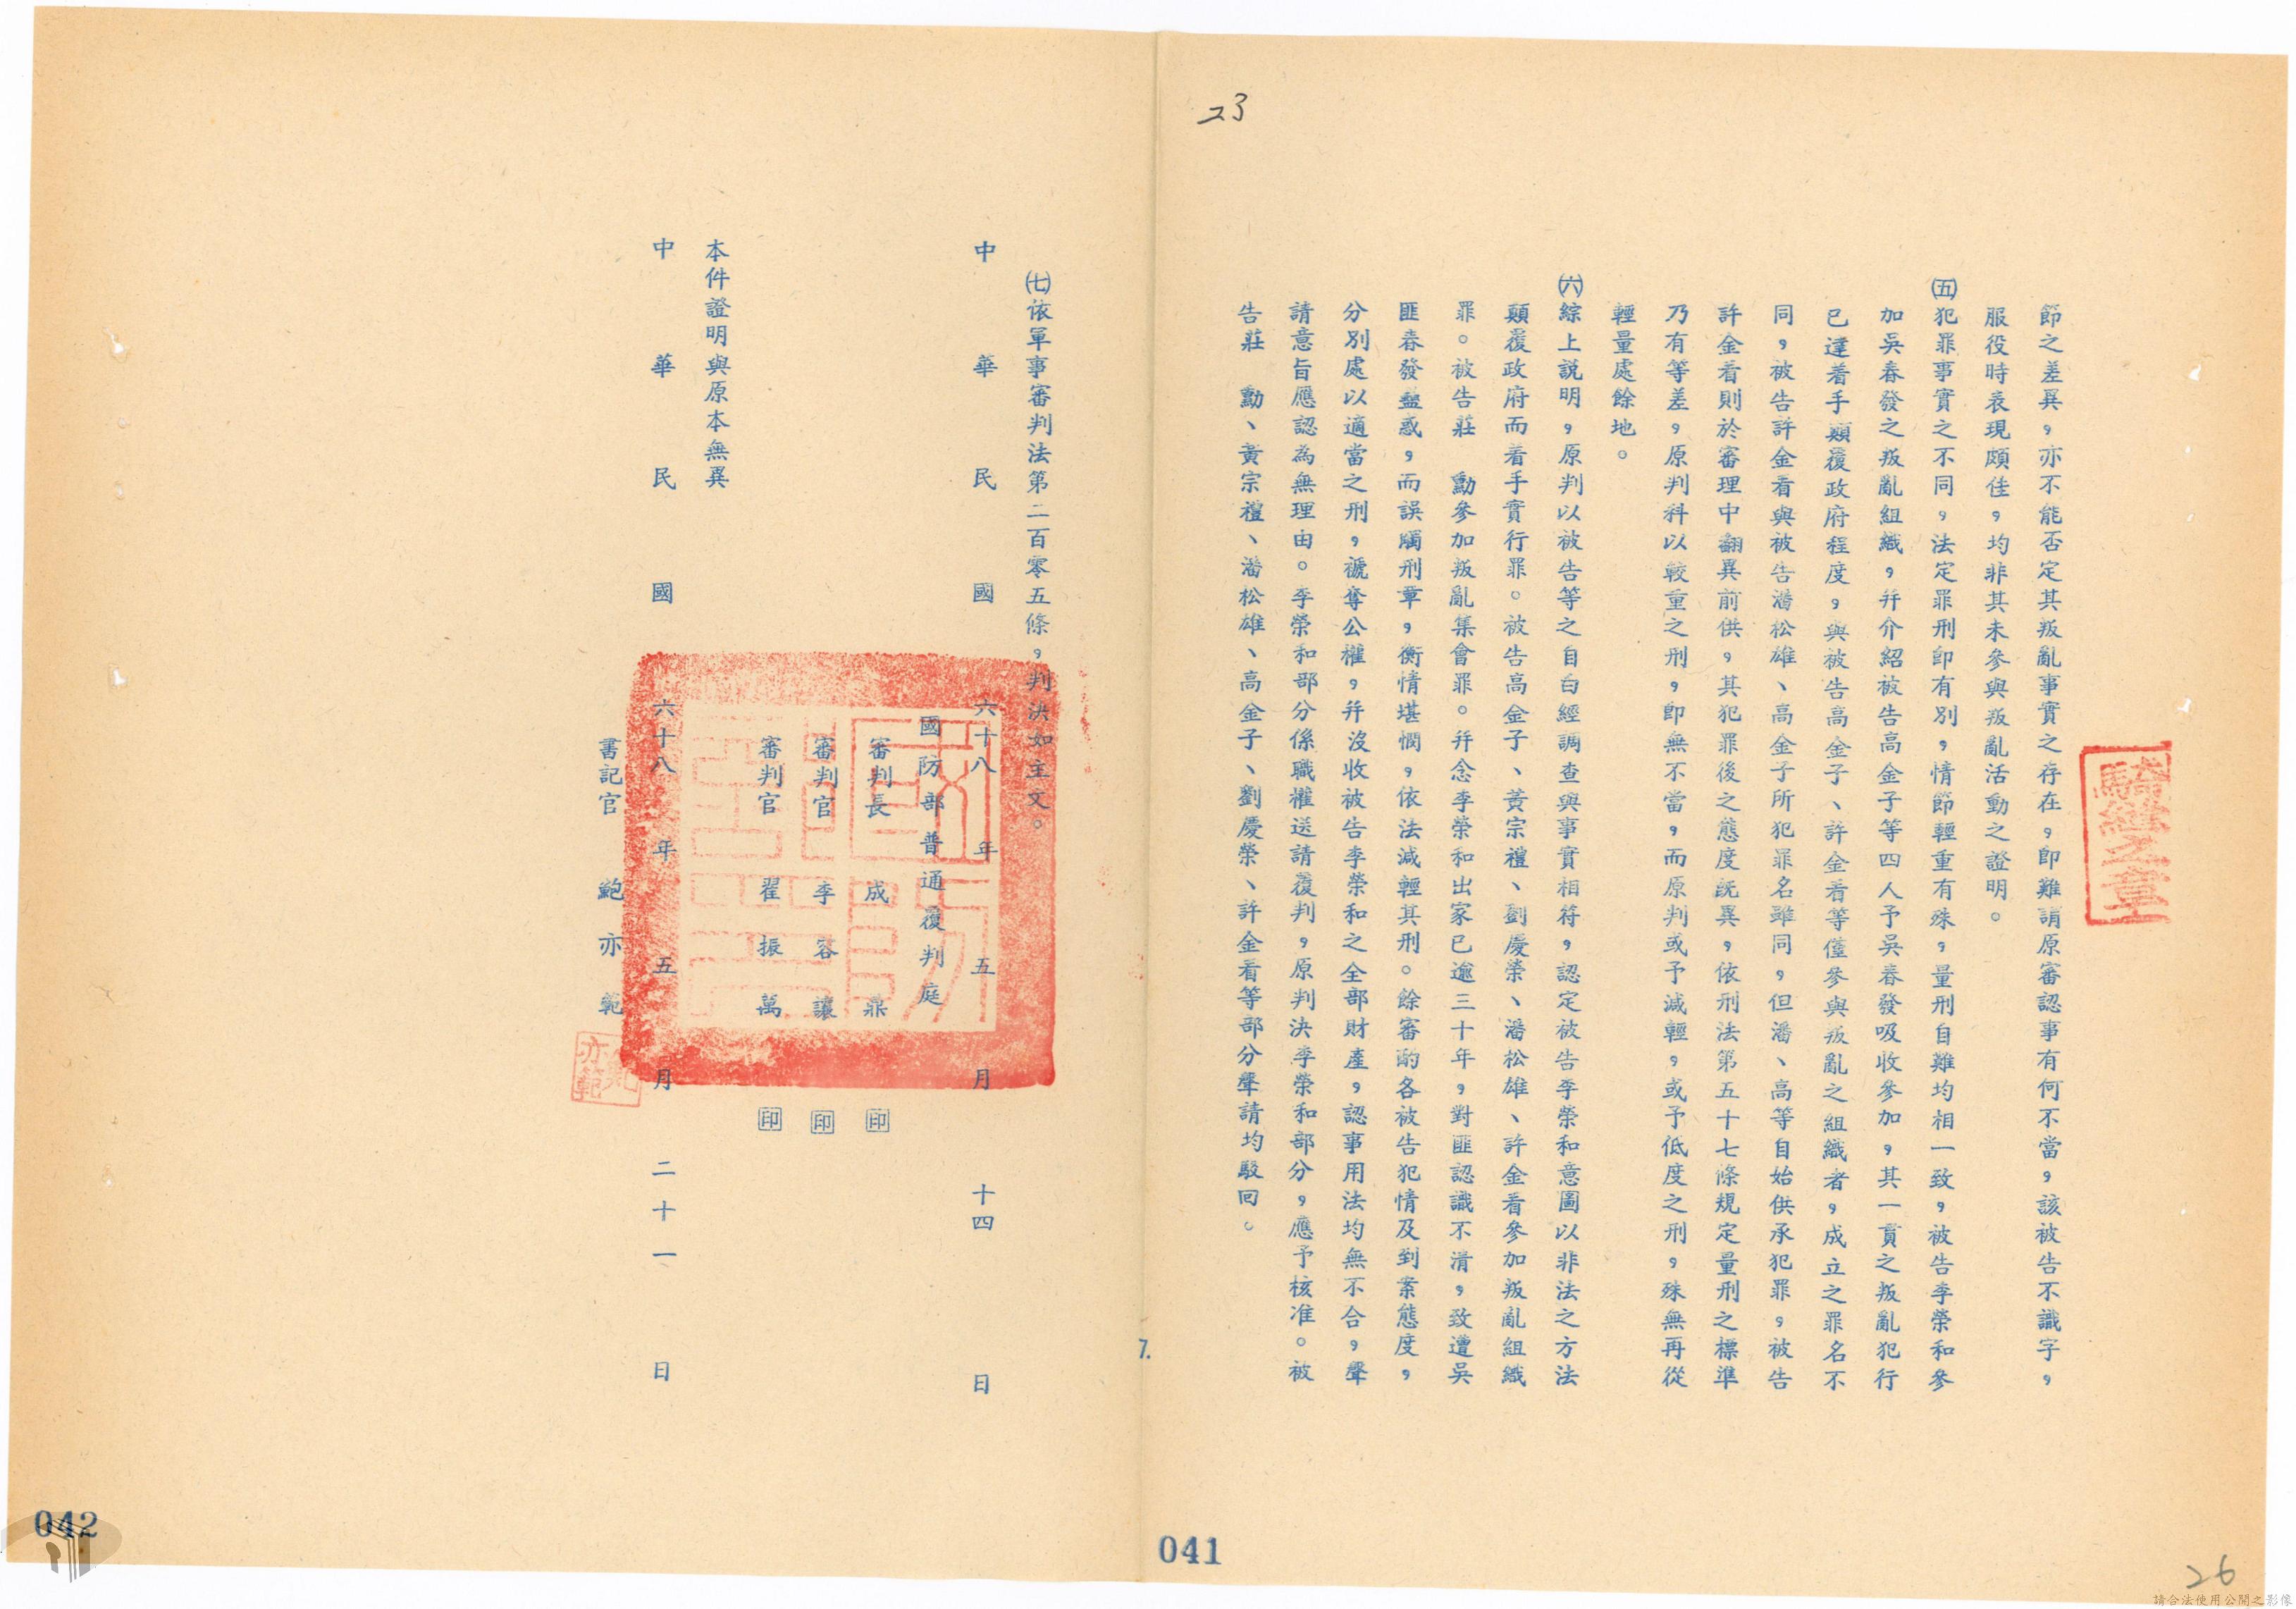 23
節之差異，亦不能否定其叛亂事實之存在，即難謂原審認事有何不當，該被告不識字，
服役時表現頗佳，均非其未參與叛亂活動之證明。
㈤犯罪事實之不同，法定罪刑即有別，情節輕重有殊，量刑自難均相一致，被告李榮和參
加吳春發之叛亂組織，幷介紹被告高金子等四人予吳春發吸收參加，其一貫之叛亂犯行
已達着手顛覆政府程度，與被告高金子、許金看等僅參與叛亂之組織者，成立之罪名不
同，被告許金看與被告潘松雄、高金子所犯罪名雖同，但潘、高等自始供承犯罪，被告
許金看則於審理中翻異前供，其犯罪後之態度旣異，依刑法第五十七條規定量刑之標準
乃有等差，原判科以較重之刑，即無不當，而原判或予減輕，或予低度之刑，殊無再從
輕量處餘地。
㈥綜上說明，原判以被告等之自白經調查與事實相符，認定被告李榮和意圖以非法之方法
顛覆政府而着手實行罪。被告高金子、黃宗禮、劉慶榮、潘松雄、許金看參加叛亂組織
罪。被告莊　勳參加叛亂集會罪。幷念李榮和出家已逾三十年，對匪認識不清，致遭吳
匪春發蠱惑，而誤觸刑章，衡情堪憫，依法減輕其刑。餘審酌各被告犯情及到案態度，
分別處以適當之刑，褫奪公權，幷沒收被告李榮和之全部財產，認事用法均無不合，聲
請意旨應認為無理由。李榮和部分係職權送請覆判，原判決李榮和部分，應予核准。被
告莊　勳、黃宗禮、潘松雄、高金子、劉慶榮、許金看等部分聲請均駁回。
騎縫之章
041
26
7.
㈦依軍事審判法第二百零五條，判決如主文。
中華民國六十八年五月十四日
國防部普通覆判庭
審判長　成　鼎　印
審判官　李容讓　印
審判官　翟振萬　印
本件證明與原本無異
中華民國六十八年五月二十一日
書記官　鮑亦範
鮑亦範
042
請合法使用公開之影像